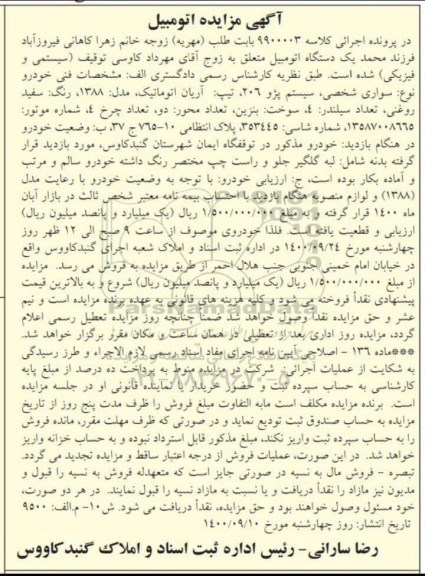 آگهی مزایده اتومبیل
در پرونده اجرائی کلاسه ۹۹۰۰۰۰۳ بابت طلب (مهریه) زوجه خانم زهرا کاهانی فیروزآباد
فرزند محمد یک دستگاه اتومبیل متعلق به زوج آقای مهرداد کاوسی توقیف (سیستمی و
فیزیکی) شده است. طبق نظریه کارشناس رسمی دادگستری الف: مشخصات فنی خودرو
نوع: سواری شخصی، سیستم پژو ۲۰۶، تیپ: آریان اتوماتیک، مدل: ۱۳۸۸، رنگ: سفید
روغنی، تعداد سیلندر: ۴، سوخت: بنزین، تعداد محور: دو، تعداد چرخ ۴، شماره موتور:
۱۳۵۸۷۰۰۸۶۶۵، شماره شاسی: ۳۵۳۴۴۵، پلاک انتظامی ۱۰-۷۶۵ ج ۳۷، ب: وضعیت خودرو
در هنگام بازدید: خودرو مذکور در توقفگاه ایمان شهرستان گنبدکاووس، مورد بازدید قرار
گرفته بدنه شامل: لبه گلگیر جلو و راست چپ مختصر رنگ داشته خودرو سالم و مرتب
و آماده بکار بوده است، ج: ارزیابی خودرو: با توجه به وضعیت خودرو با رعایت مدل
(۱۳۸۸) و لوازم منصوبه هنگام بازدید با احتساب بیمه نامه معتبر شخص ثالث در بازار آبان
ماه ۱۴۰۰ قرار گرفته و به مبلغ ۱/۵۰۰/۰۰۰/۰۰۰ ریال (یک میلیارد و پانصد میلیون ریال)
ارزیابی و قطعیت یافته است. فلذا خودروی موصوف از ساعت ۹ صبح الی ۱۲ ظهر روز
چهارشنبه مورخ ۱۴۰۰/۰۹/۲۴ در اداره ثبت اسناد و املاک شعبه اجرای گنبدکاووس واقع
در خیابان امام خمینی جنوبی جنب هلال احمر از طریق مزایده به فروش می رسد. مزایده
از مبلغ ۱/۵۰۰/۰۰۰/۰۰۰ ریال (یک میلیارد و پانصد میلیون ریال) شروع و به بالاترین قیمت
پیشنهادی نقداً فروخته می شود و کلیه هزینه های قانونی به عهده برنده مزایده است و نیم
عشر و حق مزایده نقداً وصول خواهد شد. ضمناً چنانچه روز مزایده تعطیل رسمی اعلام
گردد، مزایده روز اداری بعد از تعطیلی در همان ساعت و مکان مقرر برگزار خواهد شد.
***ماده ۱۳۶ - اصلاحی آیین نامه اجرای مفاد اسناد رسمی لازم الاجراء و طرز رسیدگی
به شکایت از عملیات اجرائی، شرکت در مزایده منوط به پرداخت ده درصد از مبلغ پایه
کارشناسی به حساب سپرده ثبت و حضور خریدار یا نماینده قانونی او در جلسه مزایده
است. برنده مزایده مکلف است مابه التفاوت مبلغ فروش را ظرف مدت پنج روز از تاریخ
مزایده به حساب صندوق ثبت تودیع نماید و در صورتی که ظرف مهلت مقرر، مانده فروش
را به حساب سپرده ثبت واریز نکند، مبلغ مذکور قابل استرداد نبوده و به حساب خزانه واریز
خواهد شد. در این صورت، عملیات فروش از درجه اعتبار ساقط و مزایده تجدید می گردد.
تبصره - فروش مال به نسیه در صورتی جایز است که متعهدله فروش به نسیه را قبول و
مدیون نیز مازاد را نقداً دریافت و یا نسبت به مازاد نسیه را قبول نمایند. در هر دو صورت،
خود مسئول وصول خواهند بود و حق مزایده، نقداً دریافت می شود. ش۱۰- م.الف: ۹۵۰۰
تاریخ انتشار: روز چهارشنبه مورخ ۱۴۰۰/۰۹/۱۰
رضا سارانی- رئیس اداره ثبت اسناد و املاک گنبدکاووس
ParsNamadData